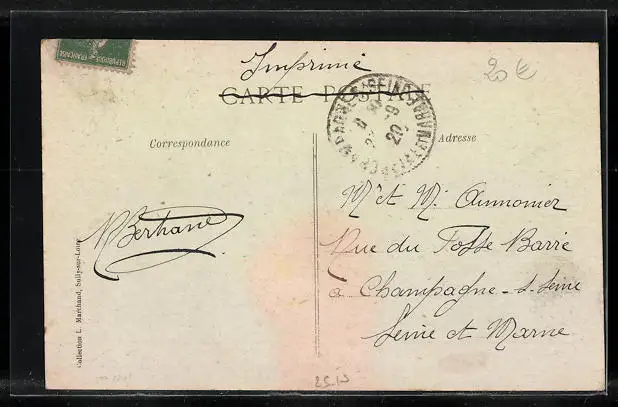 REPUBLIQUE FRANÇAISE
Imprimé
20€
CARTE POSTALE
Correspondance
Adresse
Berthane
Mr et M. Aumonier
Rue du Fossé Barré
a Champagne-s-Seine
Seine et Marne
Collection L. Marchand, Sully-sur-Loire